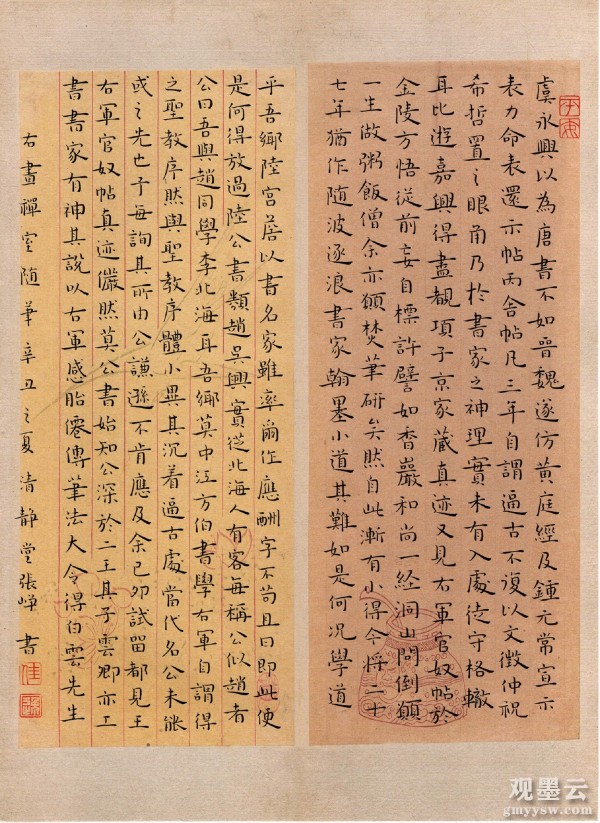 虞永興以為唐書不如晉魏遂仿黃庭經及鍾元常宣示
表力命表還示帖丙舍帖凡三年自謂逼古不復以文徵仲祝
希哲置之眼角乃於書家之神理實未有入處徒守格轍
耳比遊嘉興得盡覩項子京家藏真迹又見右軍官奴帖於
金陵方悟從前妄自標許譬如香巖和尚一經洞山問倒願
一生做粥飯僧余亦願焚筆研矣然自此漸有小得今將二十
七年猶作隨波逐浪書家翰墨小道其難如是何況學道
平吾鄉陸宮詹以書名家雖率爾作應酬字不苟且曰即此便
是何得放過陸公書類趙吳興實從北海入有客每稱公似趙者
公曰吾與趙同學李北海耳吾鄉莫中江方伯書學右軍自謂得
之聖教序然與聖教序體小異其沉着逼古處當代名公未能
或之先也予每詢其所由公謙遜不肯應及余己卯試留都見王
右軍官奴帖真迹儼然莫公書始知公深於二王其子雲卿亦工
書書家有神其說以右軍感胎僊傳筆法大令得白雲先生
右畫禪室隨筆辛丑之夏清靜堂張崢書
观墨云
gmyysw.com